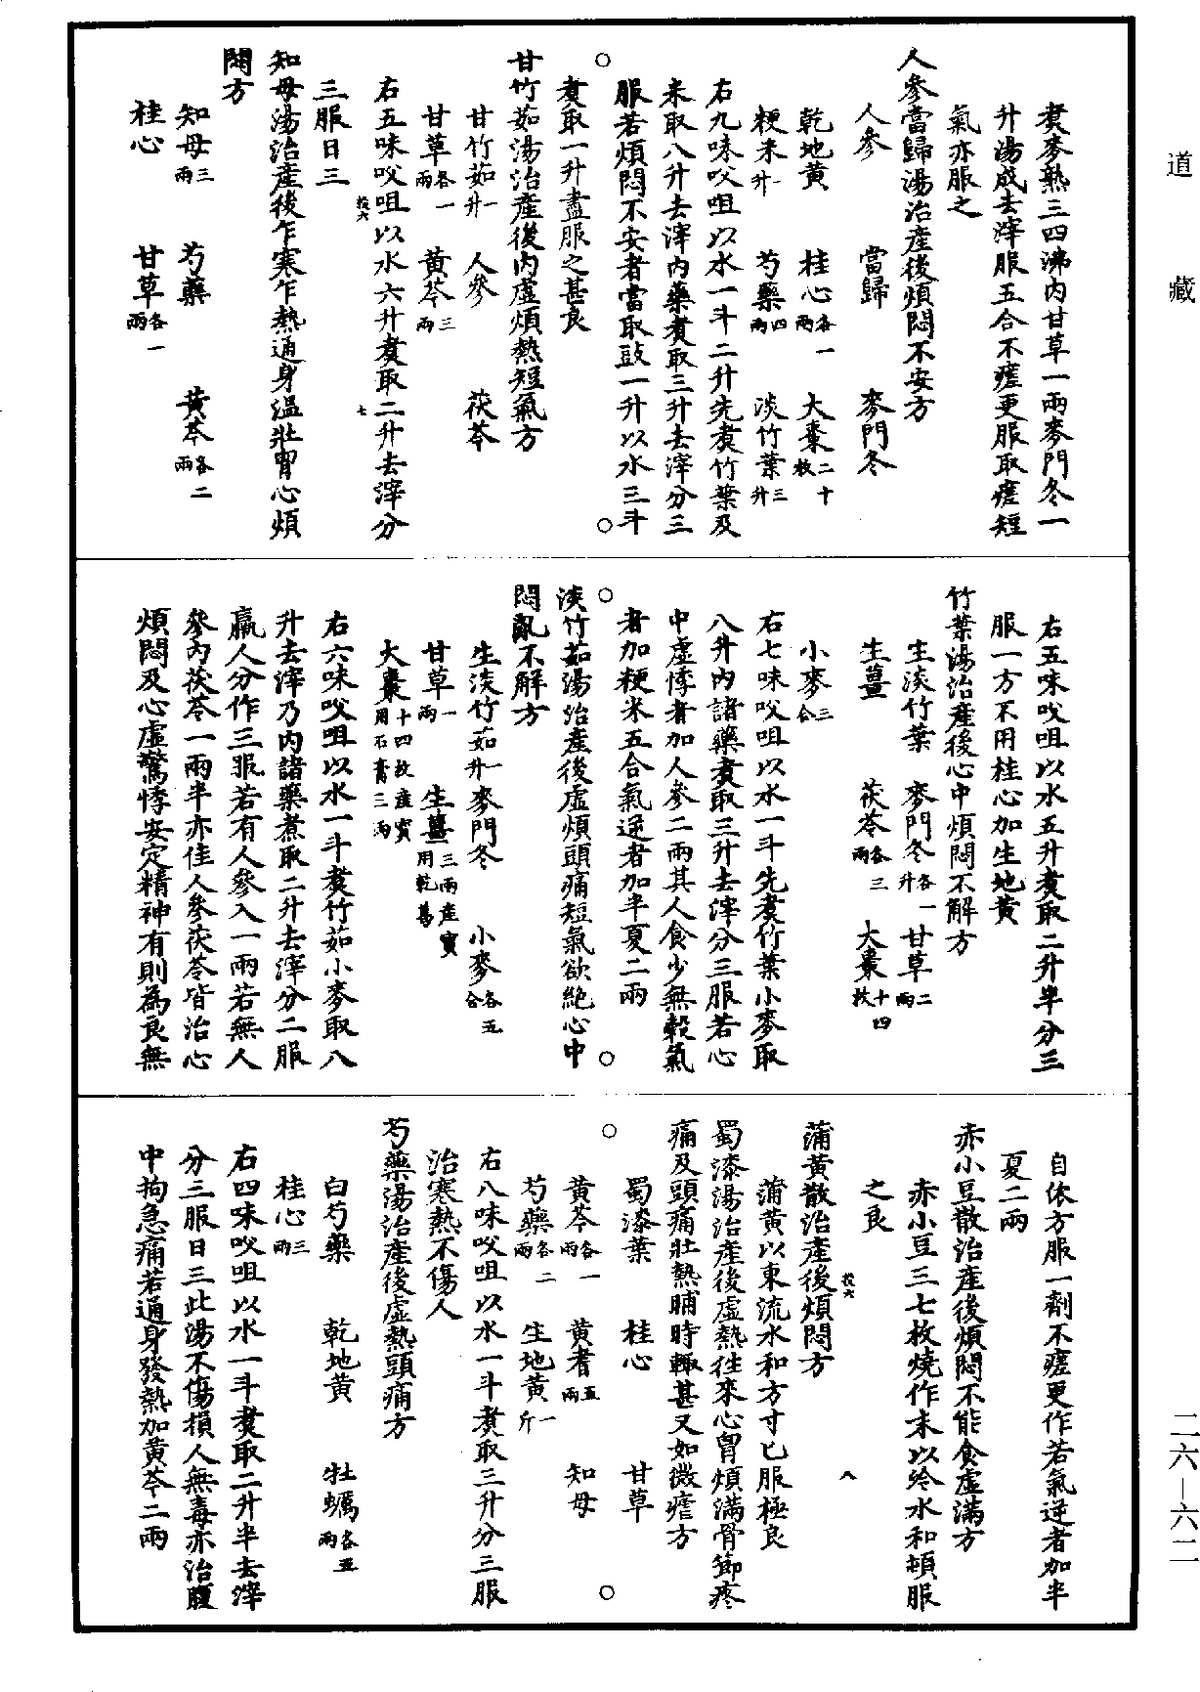 道藏
煑麥熟三四沸内甘草一兩麥門冬一
升湯成去滓服五合不瘥更服取瘥短
氣亦服之
人參當歸湯治產後煩悶不安方
人參 當歸 麥門冬
乾地黄 桂心各一兩 大棗二十枚
粳米一升 芍藥四兩 淡竹葉三升
右九味㕮咀以水一斗二升先煑竹葉及
米取八升去滓内藥煑取三升去滓分三
服若煩悶不安者當取豉一升以水三斗
煑取一升盡服之甚良
甘竹茹湯治產後内虛煩熱短氣方
甘竹茹一升 人參 茯苓
甘草各一兩 黄芩三兩
右五味㕮咀以水六升煑取二升去滓分
投六 七
三服日三
知母湯治產後乍寒乍熱通身温壯胷心煩
悶方
知母三兩 芍藥 黄芩各二兩
桂心 甘草各一兩
右五味㕮咀以水五升煑取二升半分三
服一方不用桂心加生地黄
竹葉湯治產後心中煩悶不解方
生淡竹葉 麥門冬各一升 甘草二兩
生薑 茯苓各三兩 大棗十四枚
小麥三合
右七味㕮咀以水一斗先煑竹葉小麥取
八升内諸藥煑取三升去滓分三服若心
中虛悸者加人參二兩其人食少無穀氣
者加粳米五合氣逆者加半夏二兩
淡竹茹湯治產後虛煩頭痛短氣欲絶心中
悶亂不解方
生淡竹茹一升 麥門冬 小麥各五合
甘草一兩 生薑三兩產寳用乾葛
大棗十四枚產寳用石膏三兩
右六味㕮咀以水一斗煑竹茹小麥取八
升去滓乃内諸藥煮取二升去滓分二服
羸人分作三服若有人參入一兩若無人
參内茯苓一兩半亦佳人參茯苓皆治心
煩悶及心虛驚悸安定精神有則為良無
自依方服一劑不瘥更作若氣逆者加半
夏二兩
赤小豆散治產後煩悶不能食虛滿方
赤小豆三七枚燒作末以冷水和頓服
之良
投六 八
蒲黄散治產後煩悶方
蒲黄以東流水和方寸匕服極良
蜀漆湯治產後虛熱徃來心胷煩滿骨節疼
痛及頭痛壯熱晡時輒甚又如微瘧方
蜀漆葉 桂心 甘草
黄芩各一兩 黄耆五兩 知母
芍藥各二兩 生地黄一斤
右八味㕮咀以水一斗煑取三升分三服
治寒熱不傷人
芍藥湯治產後虛熱頭痛方
白芍藥 乾地黄 牡蠣各五兩
桂心三兩
右四味㕮咀以水一斗煑取二升半去滓
分三服日三此湯不傷損人無毒亦治腹
中拘急痛若通身發熱加黄芩二兩
二六—六二